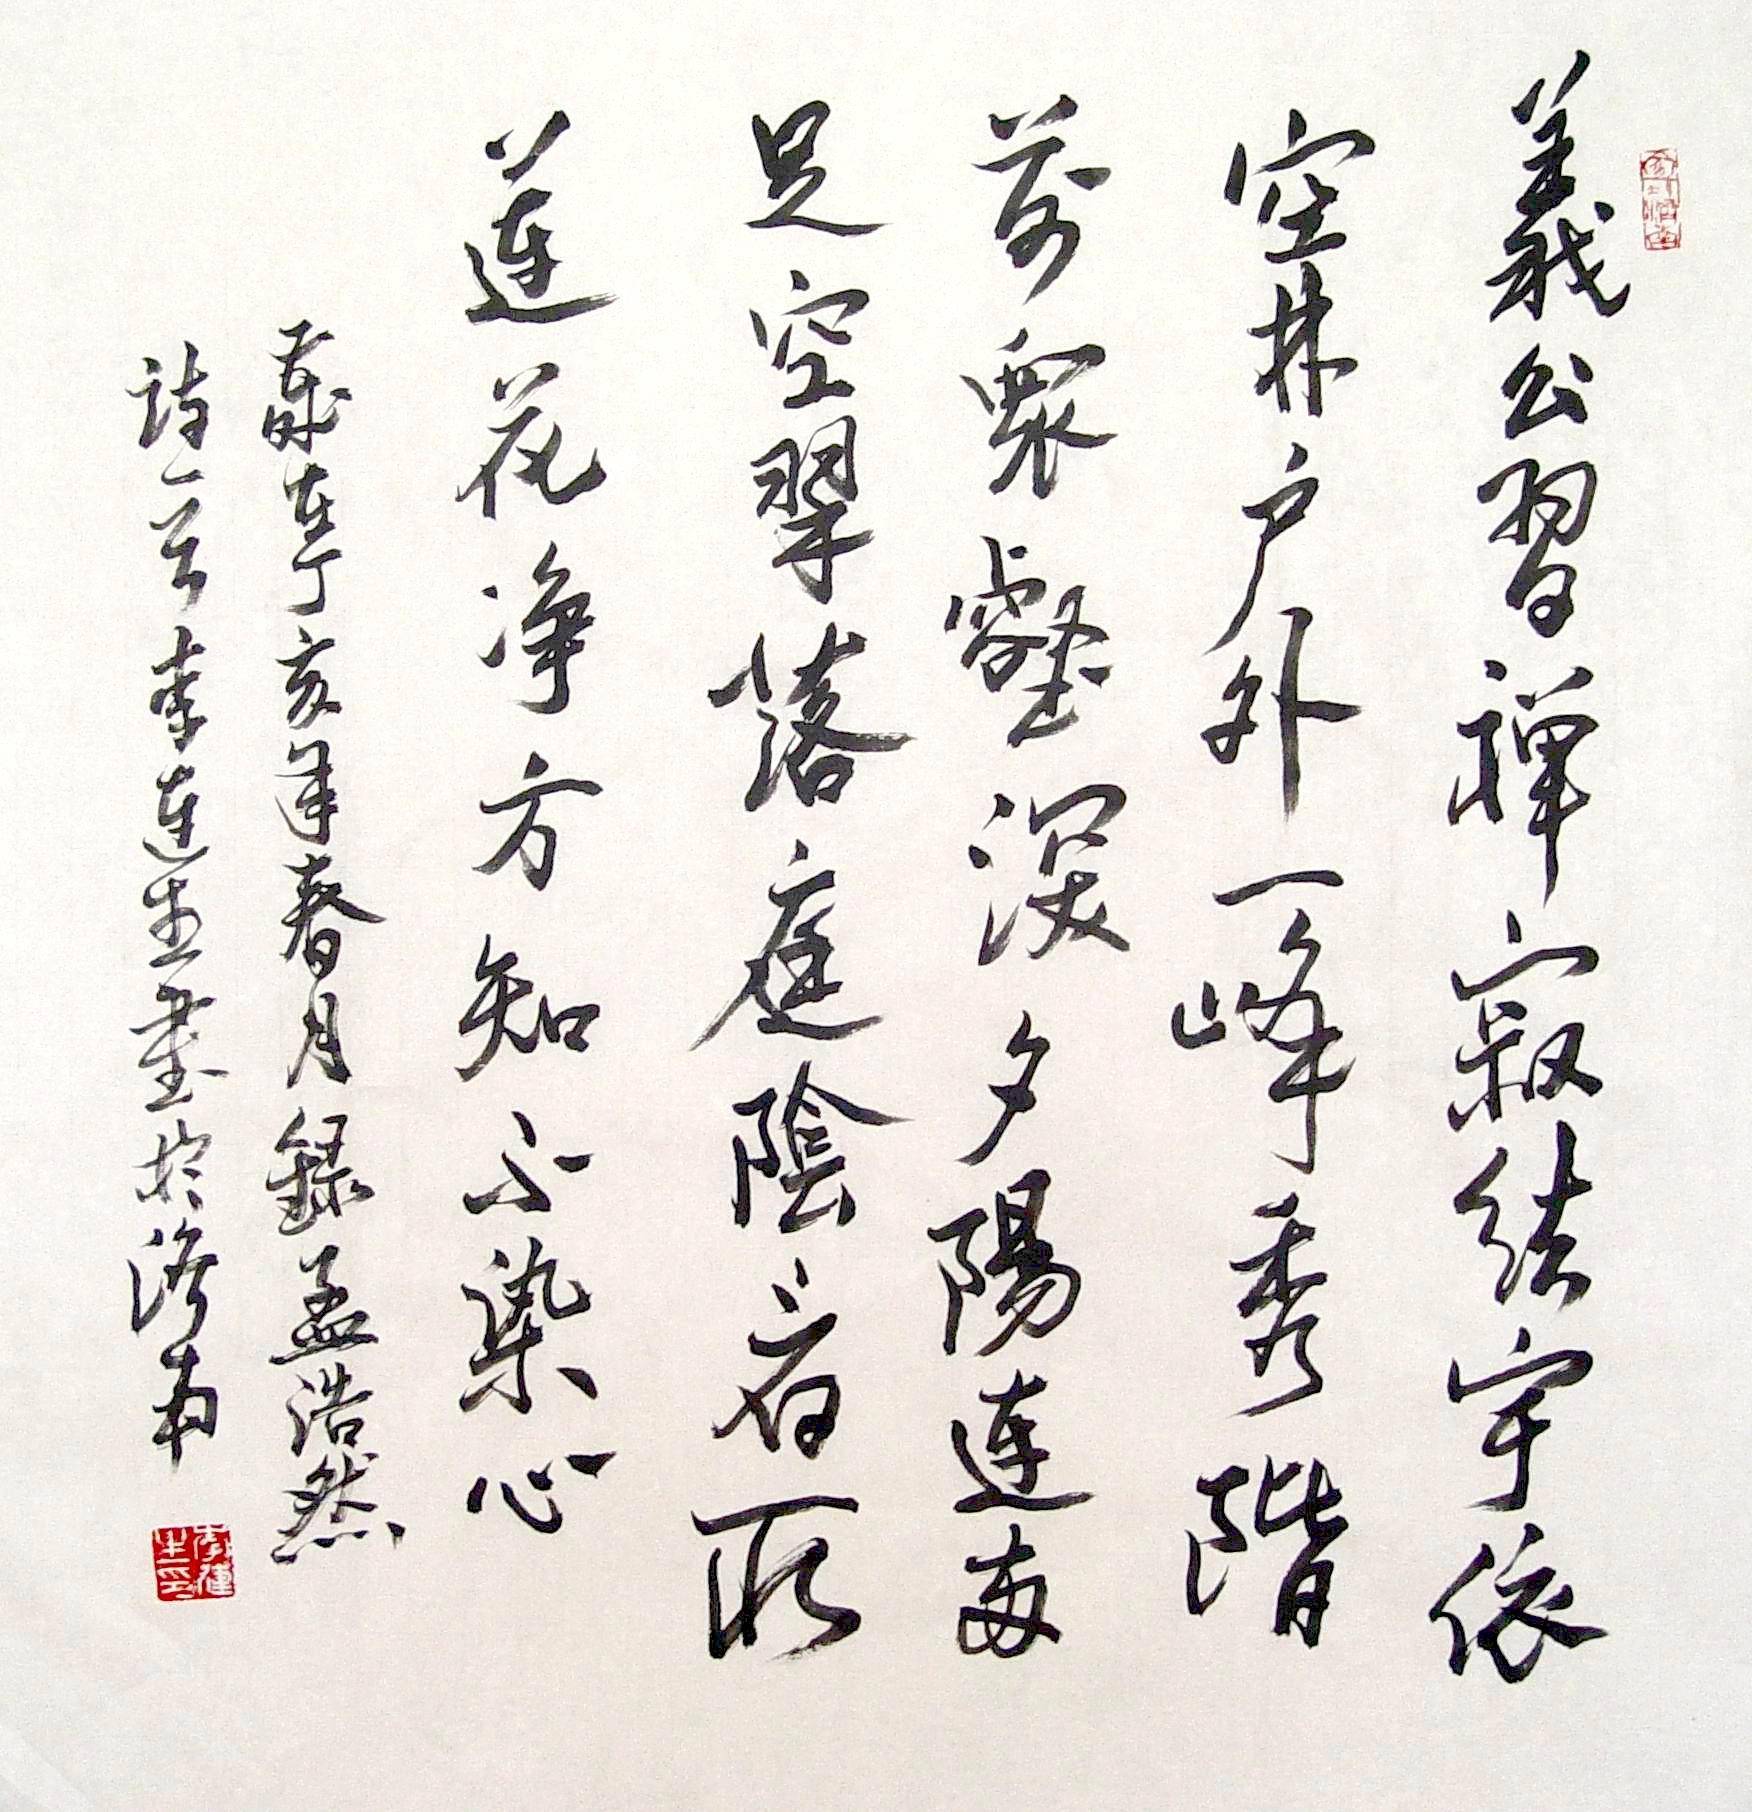 義公習禪寂結宇依
空林户外一峰秀階
前衆壑深夕陽連雨
足空翠落庭陰看取
蓮花净方知不染心
歲在丁亥年春月錄孟浩然
詩一首李連生書於濟南